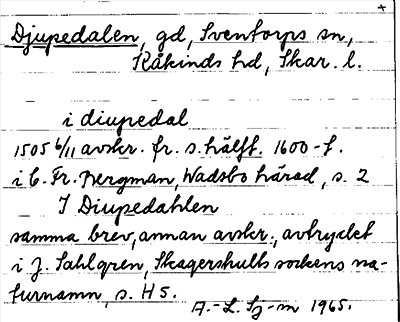 Djupedalen, gd, Sventorps sn,
Kåkinds hd, Skar. l.
i diupedal
1505 6/11 avskr. fr. s. hälft. 1600-t.
i C. Fr. Bergman, Wadsbo härad, s. 2
I Diupedahlen
samma brev, annan avskr., avtryckt
i J. Sahlgren, Skagershults sockens na-
turnamn, s. H5.
A.-L. Sj-m 1965.